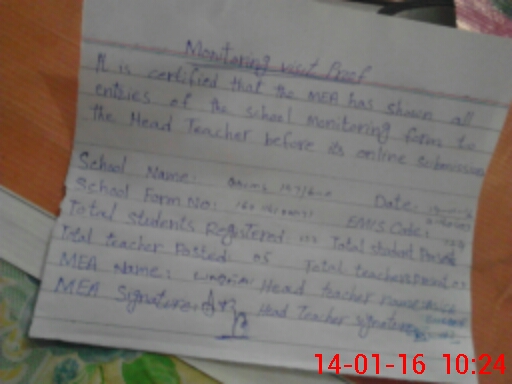 Monitoring visit Proof
It is certified that the MEA has shown all
entries of the school monitoring form to
the Head Teacher before its online submission
School Name: Date:
School Form No: EMIS Code:
Total Students Registered: Total student Present
Total teacher Posted: 05 Total teachers Present
MEA Name: Head teacher name
MEA Signature: Head Teacher signature
14-01-16 10:24